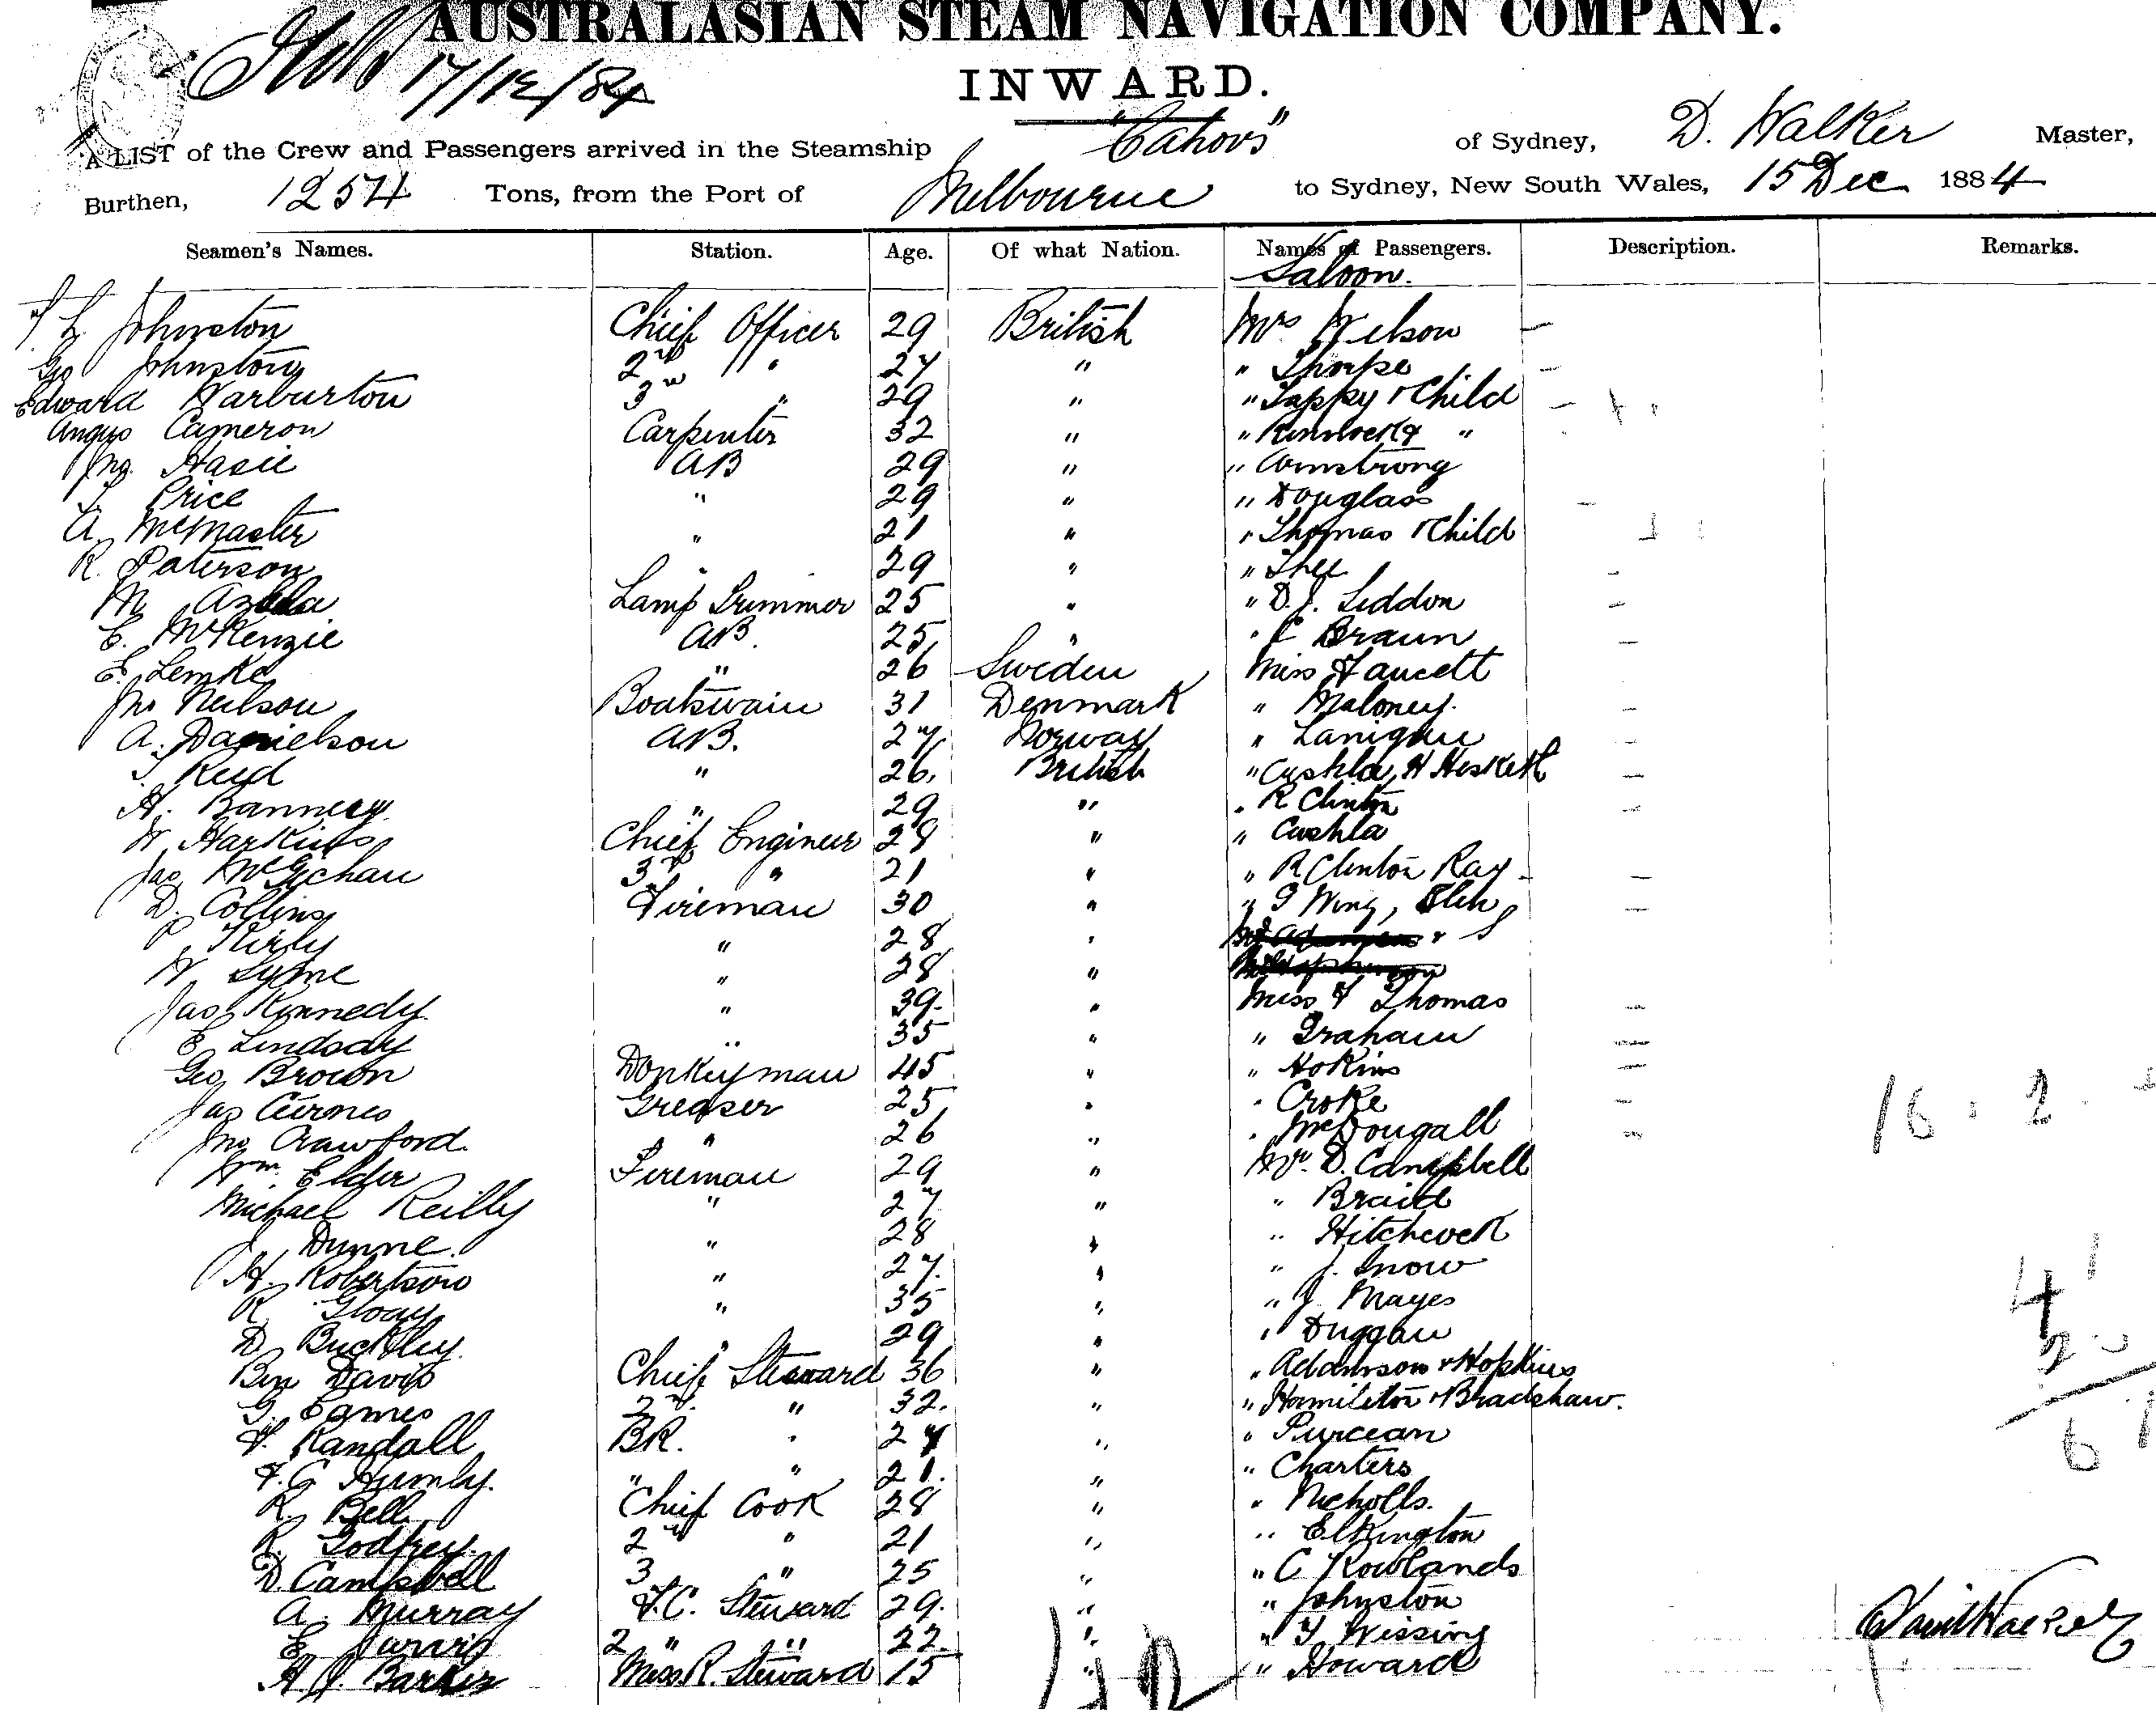 AUSTRALASIAN STEAM NAVIGATION COMPANY.
17/12/84
INWARD.
A LIST of the Crew and Passengers arrived in the Steamship "Cahors" of Sydney, D. Walker Master,
Burthen, 1254 Tons, from the Port of Melbourne to Sydney, New South Wales, 15 Dec 1884
Seamen's Names. Station. Age. Of what Nation. Names of Passengers. Description. Remarks.
Saloon.
Johnston Chief Officer 29 British Mrs Wilson
Geo Johnston 2nd " 27 " " Thorpe
Edward Warburton 3rd " 29 " " Tappy & Child
Angus Cameron Carpenter 32 " "
Jno. Hasie AB 29 " " Armstrong
Price " 29 " " Douglass
A. McMaster " 21 " " Thomas & Child
R. Paterson " 29 " "
M. Lamp Trimmer 25 " " D. J. Liddon
C. McKenzie AB. 25 " " Braun
E. Lemke " 26 Sweden Miss Faucett
Jno Neilson Boatswain 31 Denmark " Maloney.
A. Danielson AB. 27 Norway " Lanigan
Reid " 26 British " Cushla, H Hesketh
H. " 29 " " R Clinton
W. Harkins Chief Engineer 28 " " Cushla
Jas 3rd " 21 " " R Clinton Ray
D. Collins Fireman 30 " " G Wing,
P. " 28 "
W. Syme " 28 "
Jas Kennedy " 39. " Miss F Thomas
E. Lindsay " 35 " " Graham
Geo Brown Donkeyman 45 " " Hokins
Jas Cairnes Greaser 25 " " Croke
Jno Crawford. " 26 " " McDougall 16 . 2 .
Wm. Elder Fireman 29 " Mr. D. Campbell
Michael Reilly " 27 " " Braid
J. Dunne. " 28 " " Hitchcock
H. Robertson " 27. " " J. Snow
R. " 35 " " J. Mayes 4
D. Buckley. " 29 " " Duggan
Ben Davis Chief Steward 36 " " Adamson & Hopkins
G. Eames 2nd. " 32. " " Hamilton & Bradshaw.
F. Randall BR. " 24 " " Purcean
F. G. Humly. " " 21. " " Charters
R. Bell Chief Cook 28 " " Nicholls.
R. Godfrey. 2nd " 21 " " Elkington
D. Campbell 3 " 25 " " C Rowlands
A. Murray F.C. Steward 29. " " Johnston
E. Jarvis 2 " " 22. " " Wissing
H. J. Barker Mess R. Steward 15 " " Howard